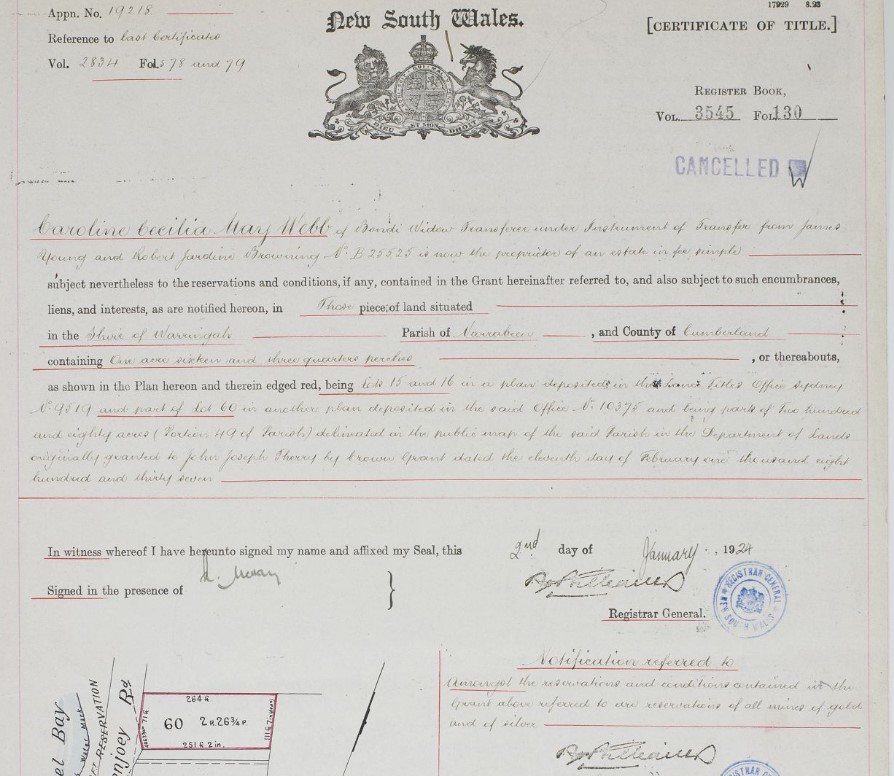 Appn. No. 19218
Reference to Last Certificates
Vol. 2834 Fols 78 and 79
New South Wales.
17929 8.23
[CERTIFICATE OF TITLE.]
REGISTER BOOK,
VOL. 3545 FOL. 130
CANCELLED
Caroline Cecilia May Webb of Bondi Widow Transferee under Instrument of Transfer from James
Young and Robert Jardine Browning No. B25525 is now the proprietor of an estate in fee simple
subject nevertheless to the reservations and conditions, if any, contained in the Grant hereinafter referred to, and also subject to such encumbrances,
liens, and interests, as are notified hereon, in Those piece of land situated
in the Shire of Warringah Parish of Narrabeen , and County of Cumberland
containing One acre sixteen and three quarters perches , or thereabouts,
as shown in the Plan hereon and therein edged red, being Lots 15 and 16 in a plan deposited in the Land Titles Office Sydney
No. 9819 and part of Lot 60 in another plan deposited in the said Office No. 10375 and being part of Two hundred
and eighty acres (Portion 49 of Parish) delineated in the public map of the said Parish in the Department of Lands
originally granted to John Joseph Therry by Crown Grant dated the eleventh day of February one thousand eight
hundred and thirty seven
In witness whereof I have hereunto signed my name and affixed my Seal, this 2nd day of January , 1924
Signed in the presence of
Registrar General.
REGISTRAR GENERAL NEW SOUTH WALES
Notification referred to
Amongst the reservations and conditions contained in the
Grant above referred to are reservations of all mines of gold
and of silver
264 ft
60 2R. 26¾P.
251 ft 2in.
el Bay
RESERVATION
njoey Rd